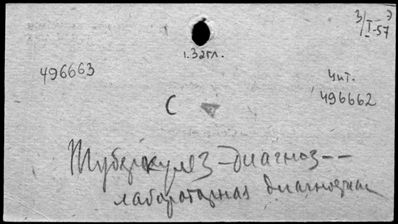 3/I-57
1.32гл.
496663
Чит.
496662
С
Туберкулез - диагноз --
лабораторная диагностика